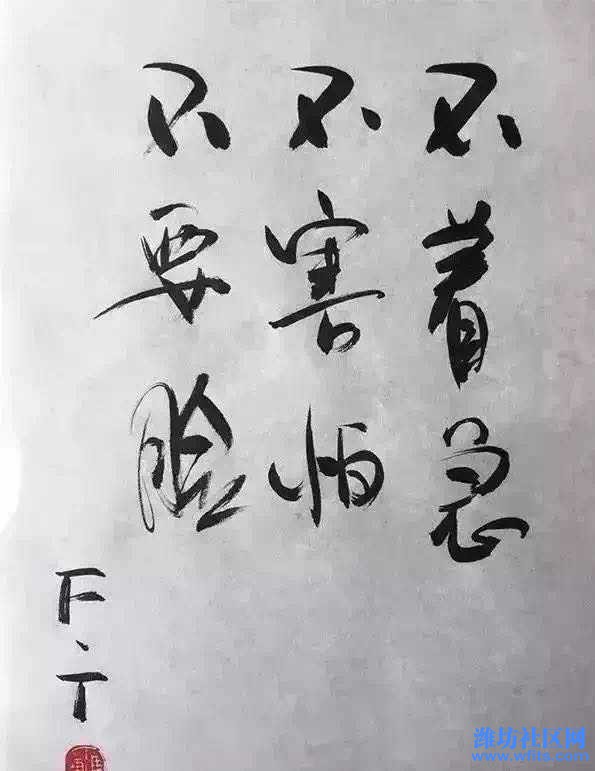 不着急
不害怕
不要脸
F、T
潍坊社区网
www.wfits.com